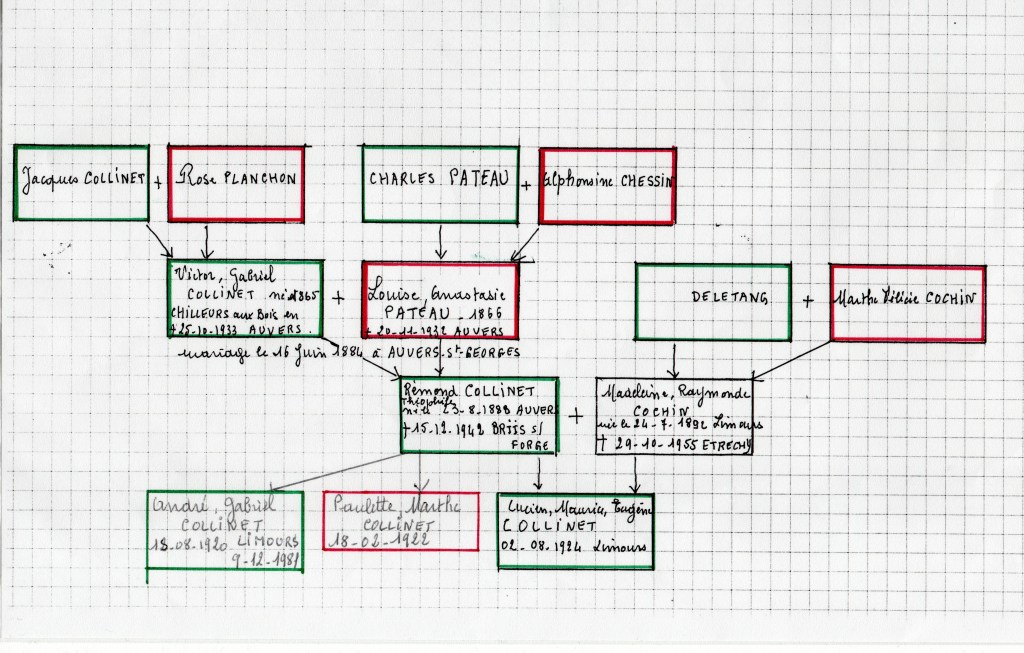 Jacques COLLINET + Rose PLANCHON
CHARLES PATEAU + Alphonsine CHESSIN
Victor, Gabriel
COLLINET né 1865
CHILLEURS aux Bois en
+25-10-1933 AUVERS.
+
Louise, Anastasie
PATEAU - 1866
+ 20-11-1932 AUVERS
DELETANG + Marthe Félicie COCHIN
mariage le 16 Juin 1884 à AUVERS-St-GEORGES
Rémond COLLINET
Théophile
né le 23-8-1888 AUVERS
+15-12-1942 BRIIS s/
FORGE
+
Madeleine, Raymonde
COCHIN
née le 24-7-1892 Limours
† 29-10-1955 ETRECHY
André, Gabriel
COLLINET
18-08-1920 LIMOURS
9-12-1981
Paulette, Marthe
COLLINET
18-02-1922
Lucien, Maurice, Eugène
COLLINET
02-08-1924 Limours